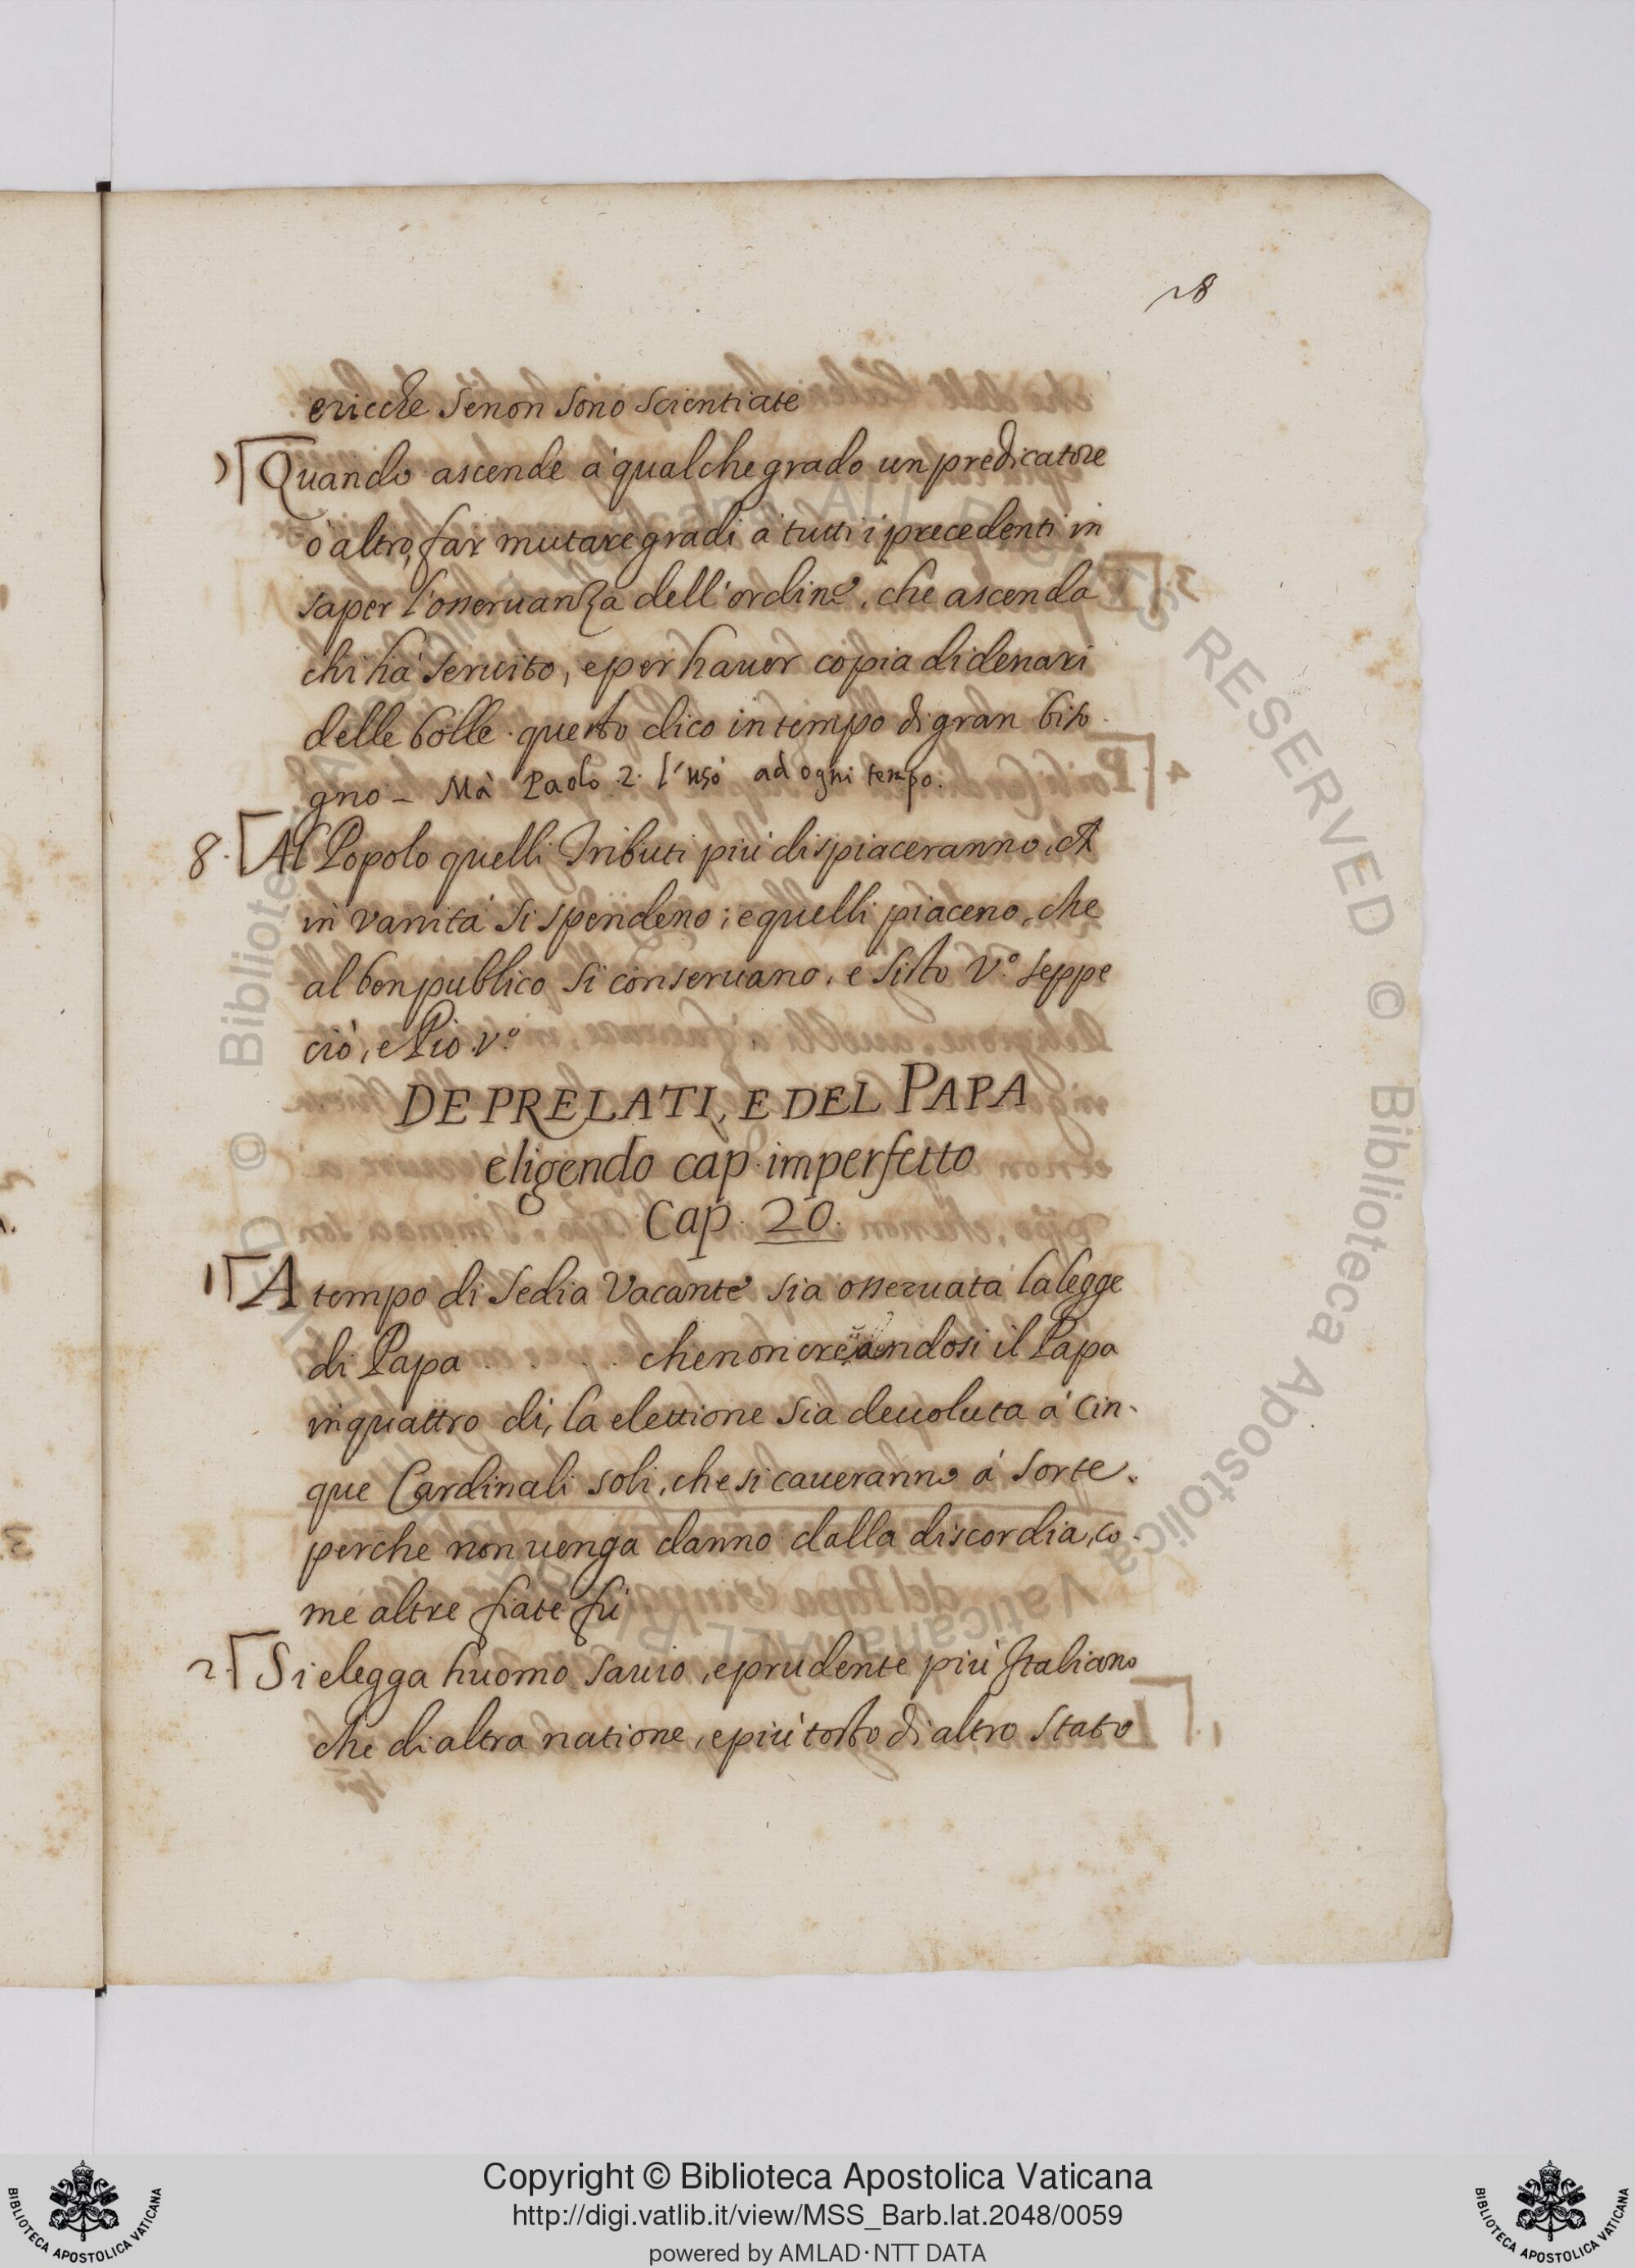 28
ericche senon sono scientiate
7 Quando ascende à qualche grado un predicatore
ò altro, far mutare gradi à tutti i precedenti in
saper l'osseruanza dell'ordine, che ascenda
chi hà seruito, e per hauer copia di denari
delle bolle. questo dico in tempo di gran biso-
gno - Mà Paolo 2. l'usò ad ogni tempo.
8. Al Popolo quelli Tributi più dispiaceranno, ch
in vanità si spendeno; e quelli piaceno, che
al ben publico si conseruano, e Sisto V.º seppe
ciò, e Pio V.º
DE PRELATI, E DEL PAPA
eligendo cap. imperfetto
Cap. 20.
1 A tempo di Sedia Vacante sia osseruata la legge
di Papa . . . . che non creandosi il Papa
in quattro dì, la elettione sia deuoluta à Cin-
que Cardinali soli, che si caueranno à sorte.
perche non uenga danno dalla discordia, co-
me altre fiate fù
2. Si elegga huomo sauio, e prudente più Italiano
che di altra natione, e più tosto di altro stato
Copyright © Biblioteca Apostolica Vaticana
http://digi.vatlib.it/view/MSS_Barb.lat.2048/0059
powered by AMLAD·NTT DATA